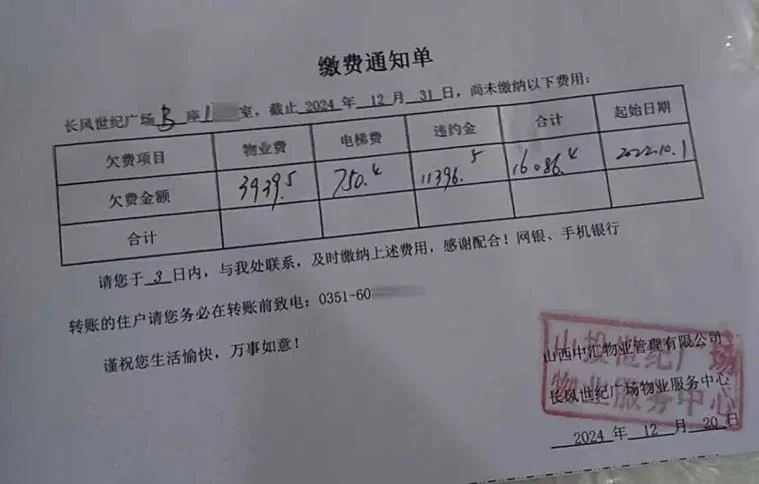 缴费通知单
长风世纪广场 B 座 1 室，截止 2024 年 12 月 31 日，尚未缴纳以下费用：
欠费项目 物业费 电梯费 违约金 合计 起始日期
欠费金额 3939.5 750.4 11396.5 16086.4 2022.10.1
合计
请您于 3 日内，与我处联系，及时缴纳上述费用，感谢配合！网银、手机银行
转账的住户请您务必在转账前致电：0351-60
谨祝您生活愉快，万事如意！
山西中汇物业管理有限公司
长风世纪广场物业服务中心
山投世纪广场
物业服务中心
2024 年 12 月 20 日